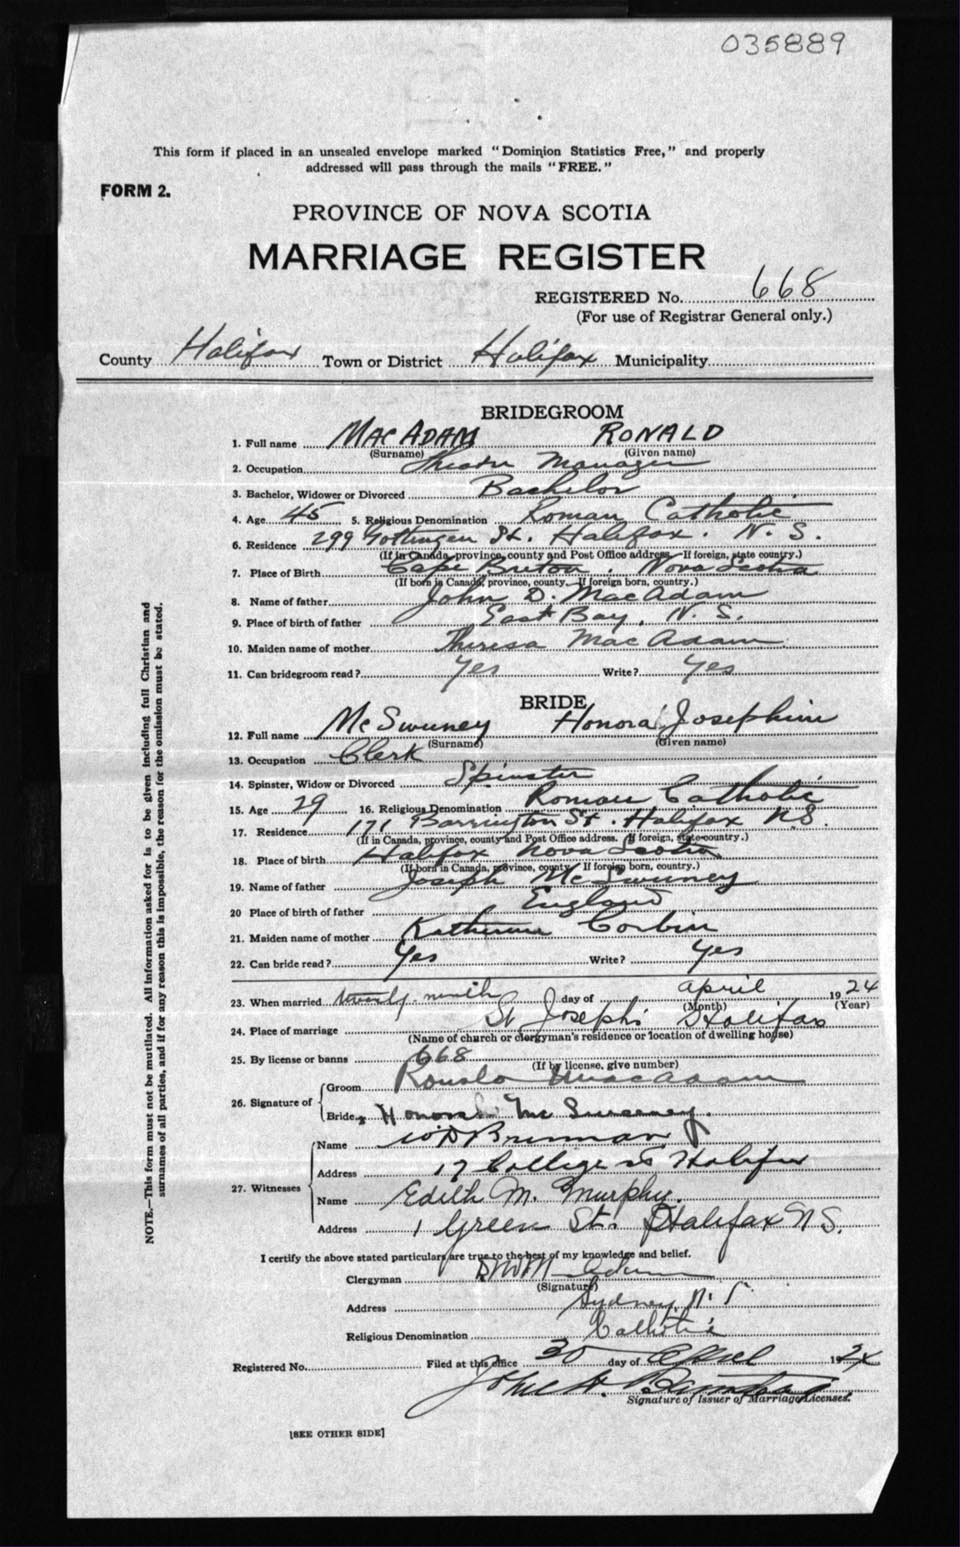 035889
This form if placed in an unsealed envelope marked "Dominion Statistics Free," and properly
addressed will pass through the mails "FREE."
FORM 2.
PROVINCE OF NOVA SCOTIA
MARRIAGE REGISTER
REGISTERED No. 668
(For use of Registrar General only.)
County Halifax Town or District Halifax Municipality
BRIDEGROOM
1. Full name MAC ADAM RONALD
(Surname) (Given name)
2. Occupation Theatre Manager
3. Bachelor, Widower or Divorced Bachelor
4. Age 45 5. Religious Denomination Roman Catholic
6. Residence 299 Gottingen St. Halifax. N. S.
(If in Canada, province, county and Post Office address. If foreign, state country.)
7. Place of Birth Cape Breton. Nova Scotia
(If born in Canada, province, county. If foreign born, country.)
8. Name of father John D. MacAdam
9. Place of birth of father East Bay, N. S.
10. Maiden name of mother Theresa MacAdam
11. Can bridegroom read? Yes Write? Yes
BRIDE
12. Full name McSweeney Honora Josephine
(Surname) (Given name)
13. Occupation Clerk
14. Spinster, Widow or Divorced Spinster
15. Age 29 16. Religious Denomination Roman Catholic
17. Residence 171 Barrington St. Halifax N.S.
(If in Canada, province, county and Post Office address. If foreign, state country.)
18. Place of birth Halifax Nova Scotia
(If born in Canada, province, county. If foreign born, country.)
19. Name of father Joseph McSweeney
20 Place of birth of father England
21. Maiden name of mother Katherine Corbin
22. Can bride read? Yes Write? Yes
23. When married twenty-ninth day of april 1924
(Month) (Year)
24. Place of marriage St Joseph's Halifax
(Name of church or clergyman's residence or location of dwelling house)
25. By license or banns 668
(If by license, give number)
26. Signature of
Groom Ronald MacAdam
Bride Honora Mc Sweeney.
27. Witnesses
Name W D Brennan
Address 17 College St Halifax
Name Edith M. Murphy.
Address 1 Green St. Halifax N S.
I certify the above stated particulars are true to the best of my knowledge and belief.
Clergyman
(Signature)
Address Sydney, N. S.
Religious Denomination Catholic
Registered No. Filed at this office 30 day of April 1924
John A.
Signature of Issuer of Marriage Licenses.
[SEE OTHER SIDE]
NOTE.—This form must not be mutilated. All information asked for is to be given including full Christian and
surnames of all parties, and if for any reason this is impossible, the reason for the omission must be stated.